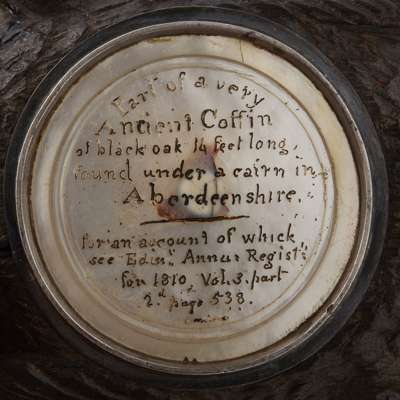 Part of a very
Ancient Coffin
of black oak 14 feet long,
found under a cairn in
Aberdeenshire.
for an account of which
see Edinr. Annu: Registr.
for 1810. Vol. 3. part
2d. page 538.